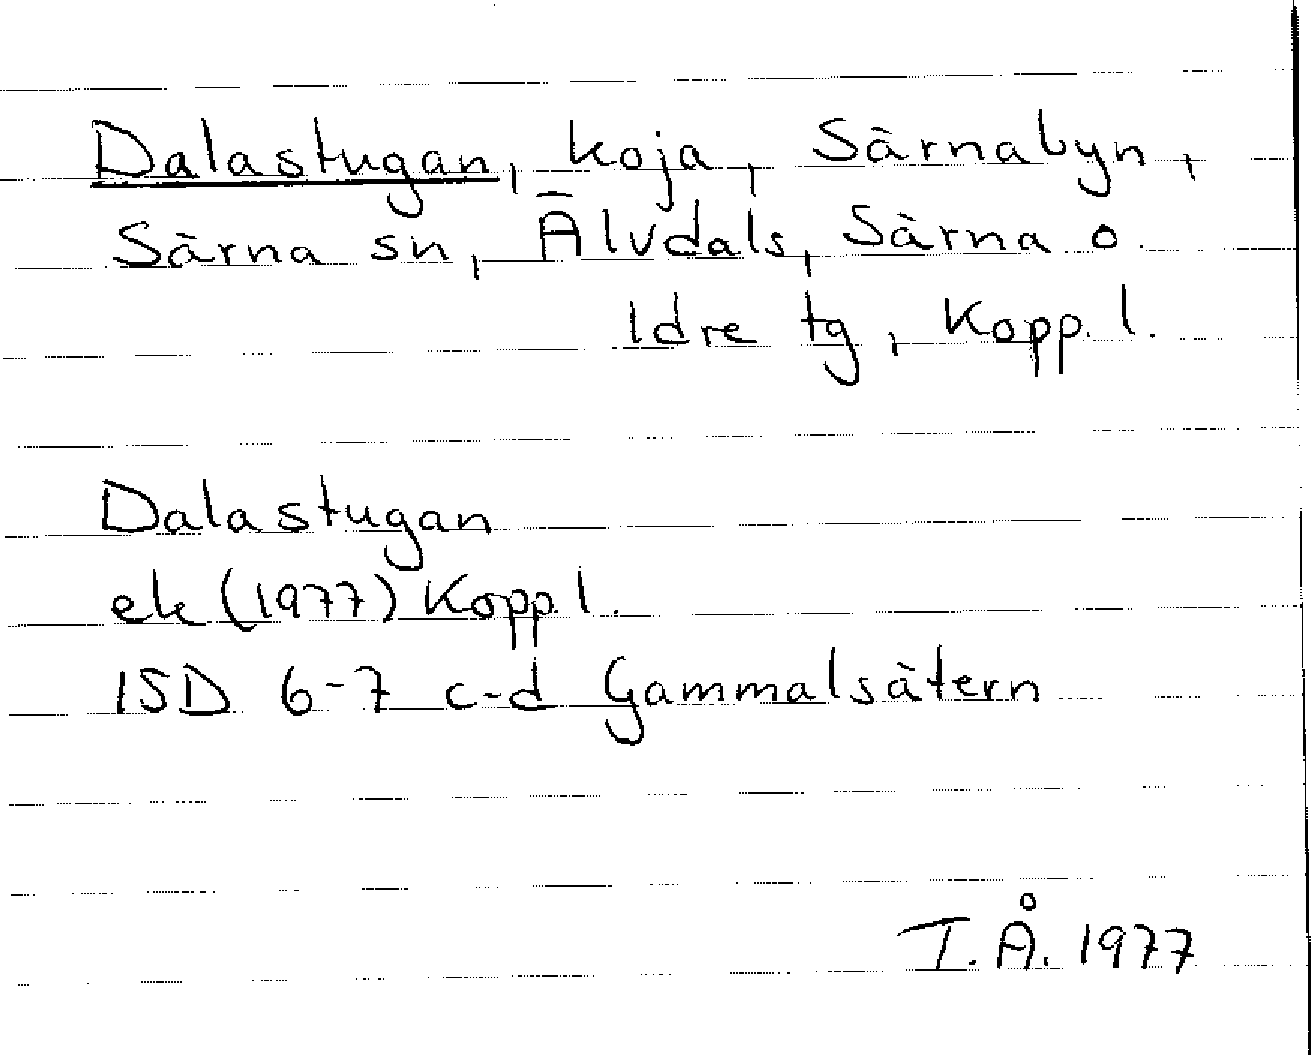 Dalastugan, koja, Särnabyn,
Särna sn, Älvdals, Särna o
Idre tg, Kopp. l.
Dalastugan
ek (1977) Kopp. l.
15D 6-7 c-d Gammalsätern
T.Å. 1977